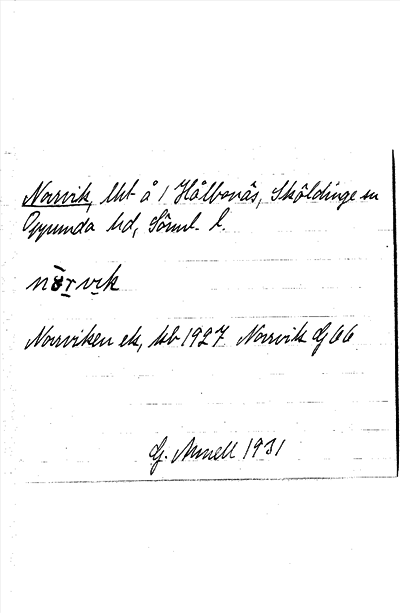 Norrvik, lht å 1 Hålbonäs, Sköldinge sn
Oppunda hd, Söml. l.
nörvik
Norrviken ek, kb 1927 Norrvik G 66
G. Annell 1931